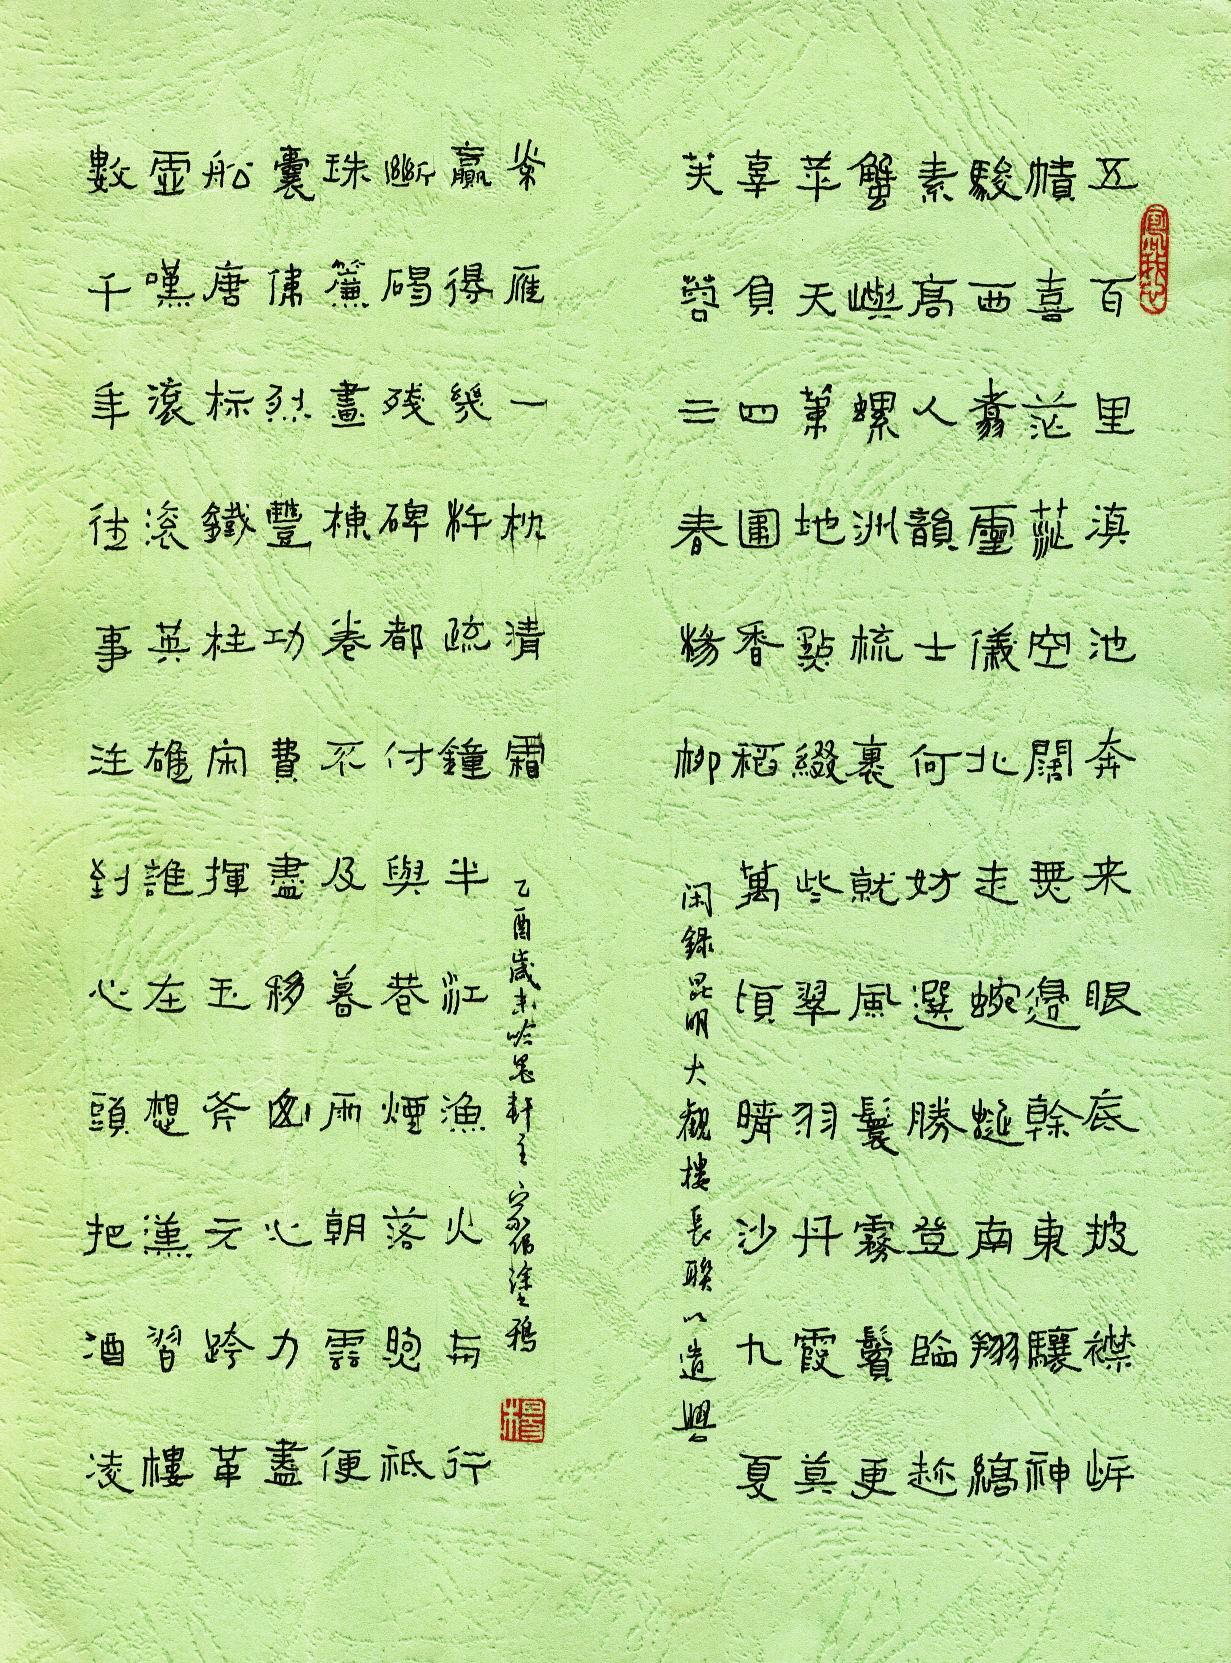 五百里滇池奔来眼底披襟岸
幘喜茫茫空闊無邊看東驤神
駿西翥靈儀北走蜿蜒南翔縞
素高人韻士何妨選勝登臨趁
蟹嶼螺洲梳裹就風鬟霧鬢更
苹天葦地點綴些翠羽丹霞莫
辜負四圍香稻萬頃晴沙九夏
芙蓉三春楊柳
闲錄昆明大觀樓長聯以遣興
數千年往事注到心頭把酒凌
虛嘆滾滾英雄誰在想漢習樓
船唐標鐵柱宋揮玉斧元跨革
囊偉烈豐功費盡移山心力盡
珠簾畫棟卷不及暮雨朝雲便
斷碣残碑都付與蒼煙落照祗
贏得幾杵疏鐘半江漁火兩行
秋雁一枕清霜
乙酉歲末吟墨軒主家塗鴉